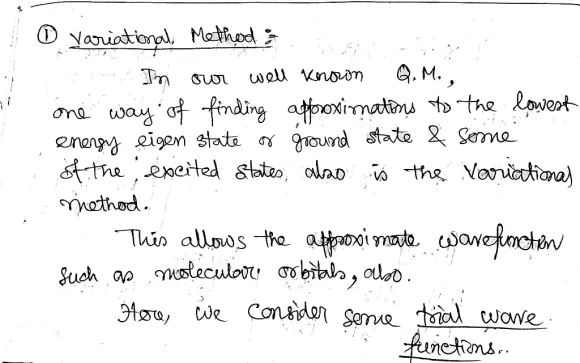 ① Variational Method :-
In our well known Q.M.,
one way of finding approximations to the lowest
energy eigen state or ground state & some
of the excited states, also is the Variational
method.
This allows the approximate wavefunction
such as molecular orbitals, also.
Here, we consider some trial wave
functions..